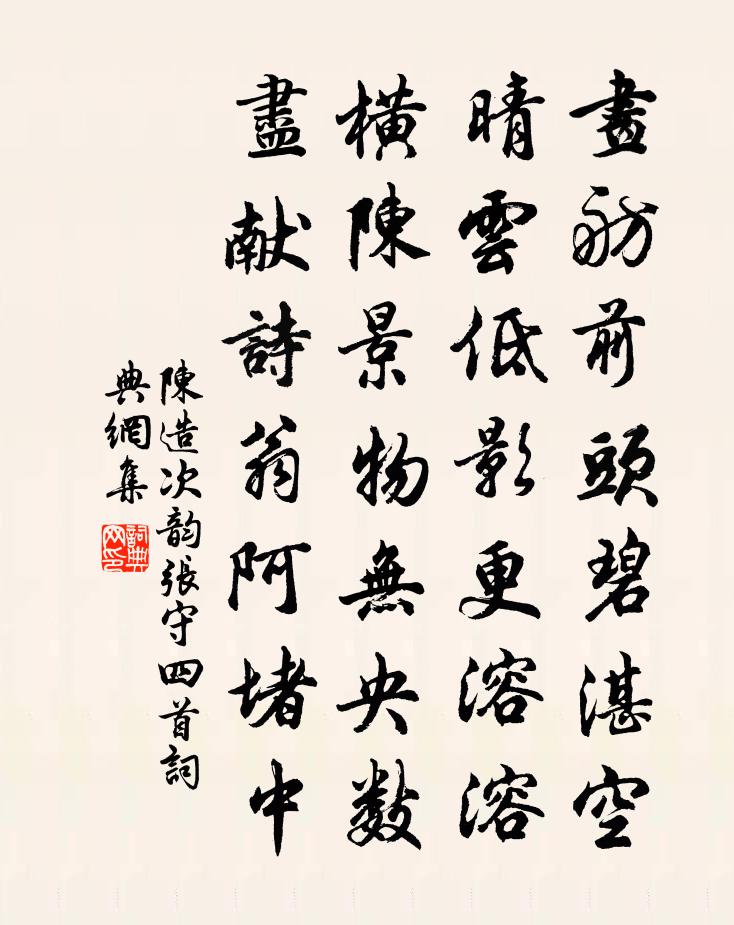 畫舫前頭碧湛空
晴雲低影更溶溶
橫陳景物無央數
盡献詩翁阿堵中
陳造次韵張守四首詞
典網集
詞典
网印